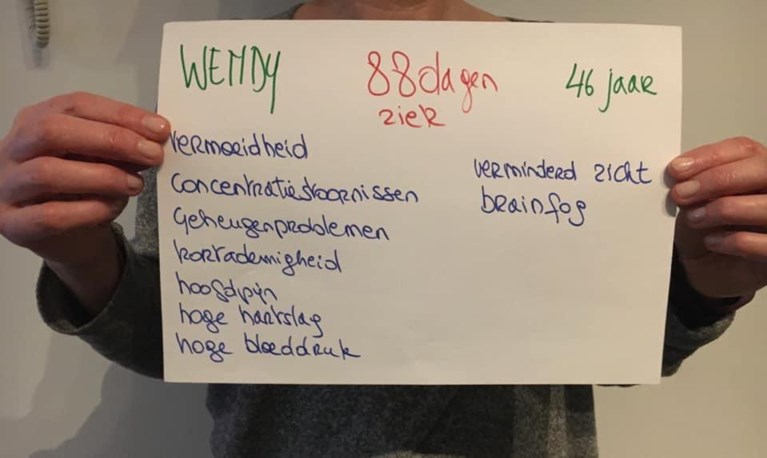 WENDY
88 dagen
ziek
46 jaar
vermoeidheid
concentratiestoornissen
geheugenproblemen
kortademigheid
hoofdpijn
hoge hartslag
hoge bloeddruk
verminderd zicht
brainfog